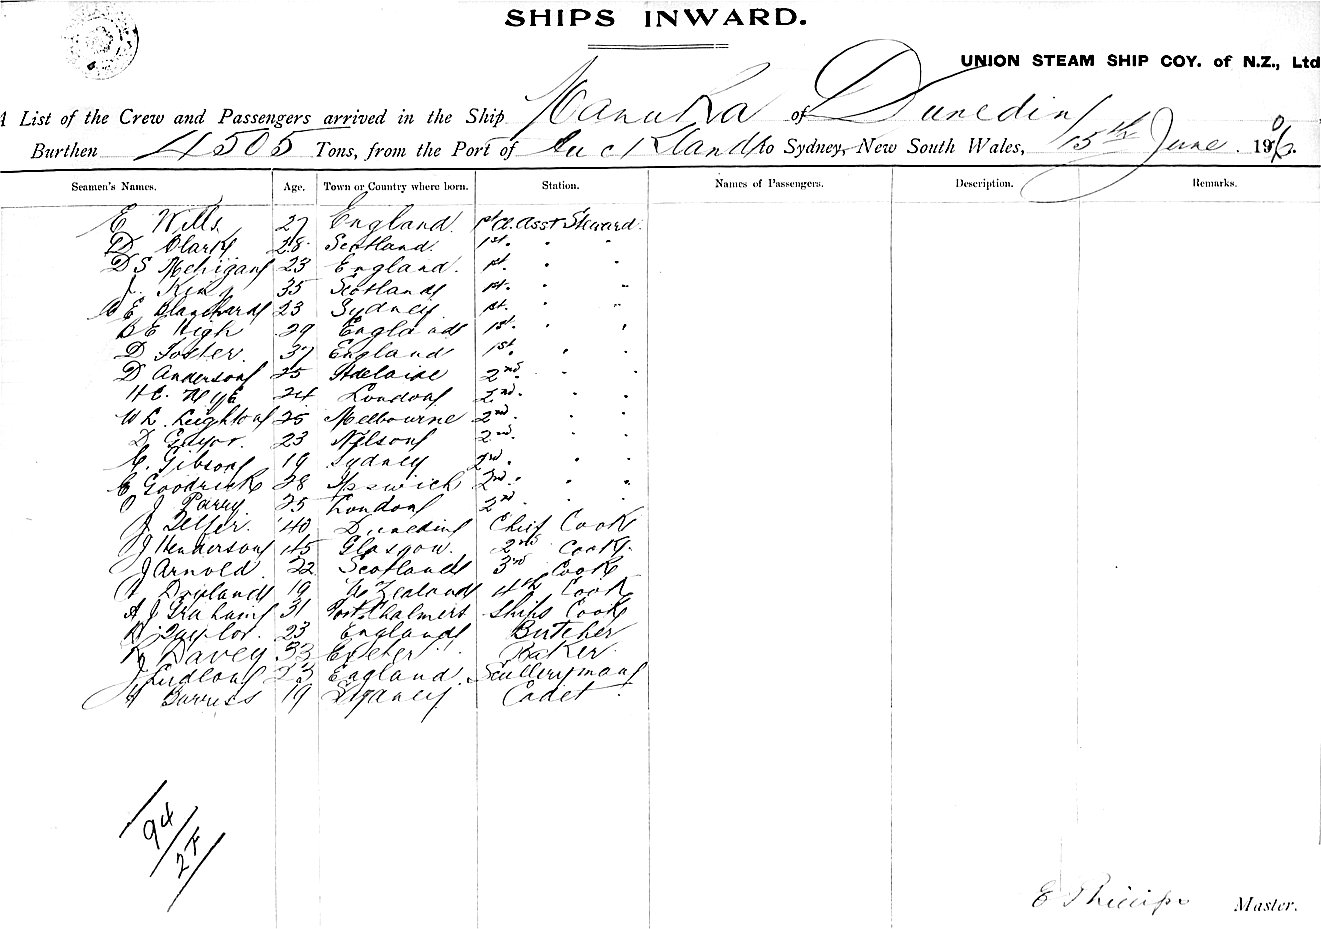 SHIPS INWARD.
UNION STEAM SHIP COY. of N.Z., Ltd
A List of the Crew and Passengers arrived in the Ship Manuka of Dunedin
Burthen 4505 Tons, from the Port of Auckland to Sydney, New South Wales, 15th June. 1906.
Seamen's Names. Age. Town or Country where born. Station. Names of Passengers. Description. Remarks.
E Wills 27 England 1st A. Asst Steward.
D Clark 28 Scotland. 1st. " "
D S Mehigan 23 England. 1st. " "
J. King 35 Scotland 1st. " "
E Blanchard 23 Sydney 1st. " "
B E High 29 England 1st. " "
D Foster. 37 England 1st. " "
D Anderson 25 Adelaide 2nd. " "
H C. Nye 24 London 2nd. " "
W L. Leighton 25 Melbourne 2nd. " "
D 23 Nelson 2nd. " "
C. Gibson 19 Sydney 2nd. " "
C Goodrick 28 Ipswich 2nd. " "
J Parry 25 London 2nd " "
J Telfer. 40 Dunedin Chief Cook
J Henderson 45 Glasgow. 2nd Cook.
J Arnold. 22 Scotland 3rd Cook
19 N Zealand 4th Cook
A J Graham 31 Port Chalmers Ships Cook
Taylor. 23 England Butcher
R Davey 33 Exeter Baker.
J Ludlow 23 England. Sculleryman
H Burress 19 Sydney Cadet
94
2F
E Phillips Master.